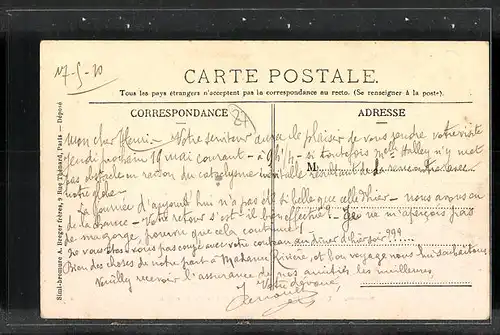 17-5-10
CARTE POSTALE.
Tous les pays étrangers n'acceptent pas la correspondance au recto. (Se renseigner à la poste).
CORRESPONDANCE
27
ADRESSE
Simili-bromure A. Breger frères, 9 Rue Thénard, Paris — Déposé
Mon cher Henri - Votre serviteur aura le plaisir de vous rendre votre visite
Jeudi prochain 19 mai courant - à 9h 1/4 - si toutefois Melle Halley n'y met
M
pas obstacle en raison du cataclysme inévitable résultant de sa rencontre avec
notre globe -
La journée d'aujourd'hui n'a pas été si belle que celle d'hier - nous avons eu
de la chance - Votre retour s'est-il bien effectué ? Je ne m'aperçois pas
de ma gorge, pourvu que cela continue !
ne vous êtes-vous pas coupé avec votre couteau au dîner d'hier soir ???
Bien des choses de notre part à Madame Rivière, et bon voyage nous lui souhaitons
Veuillez recevoir l'assurance de nos amitiés les meilleures
Votre dévoué